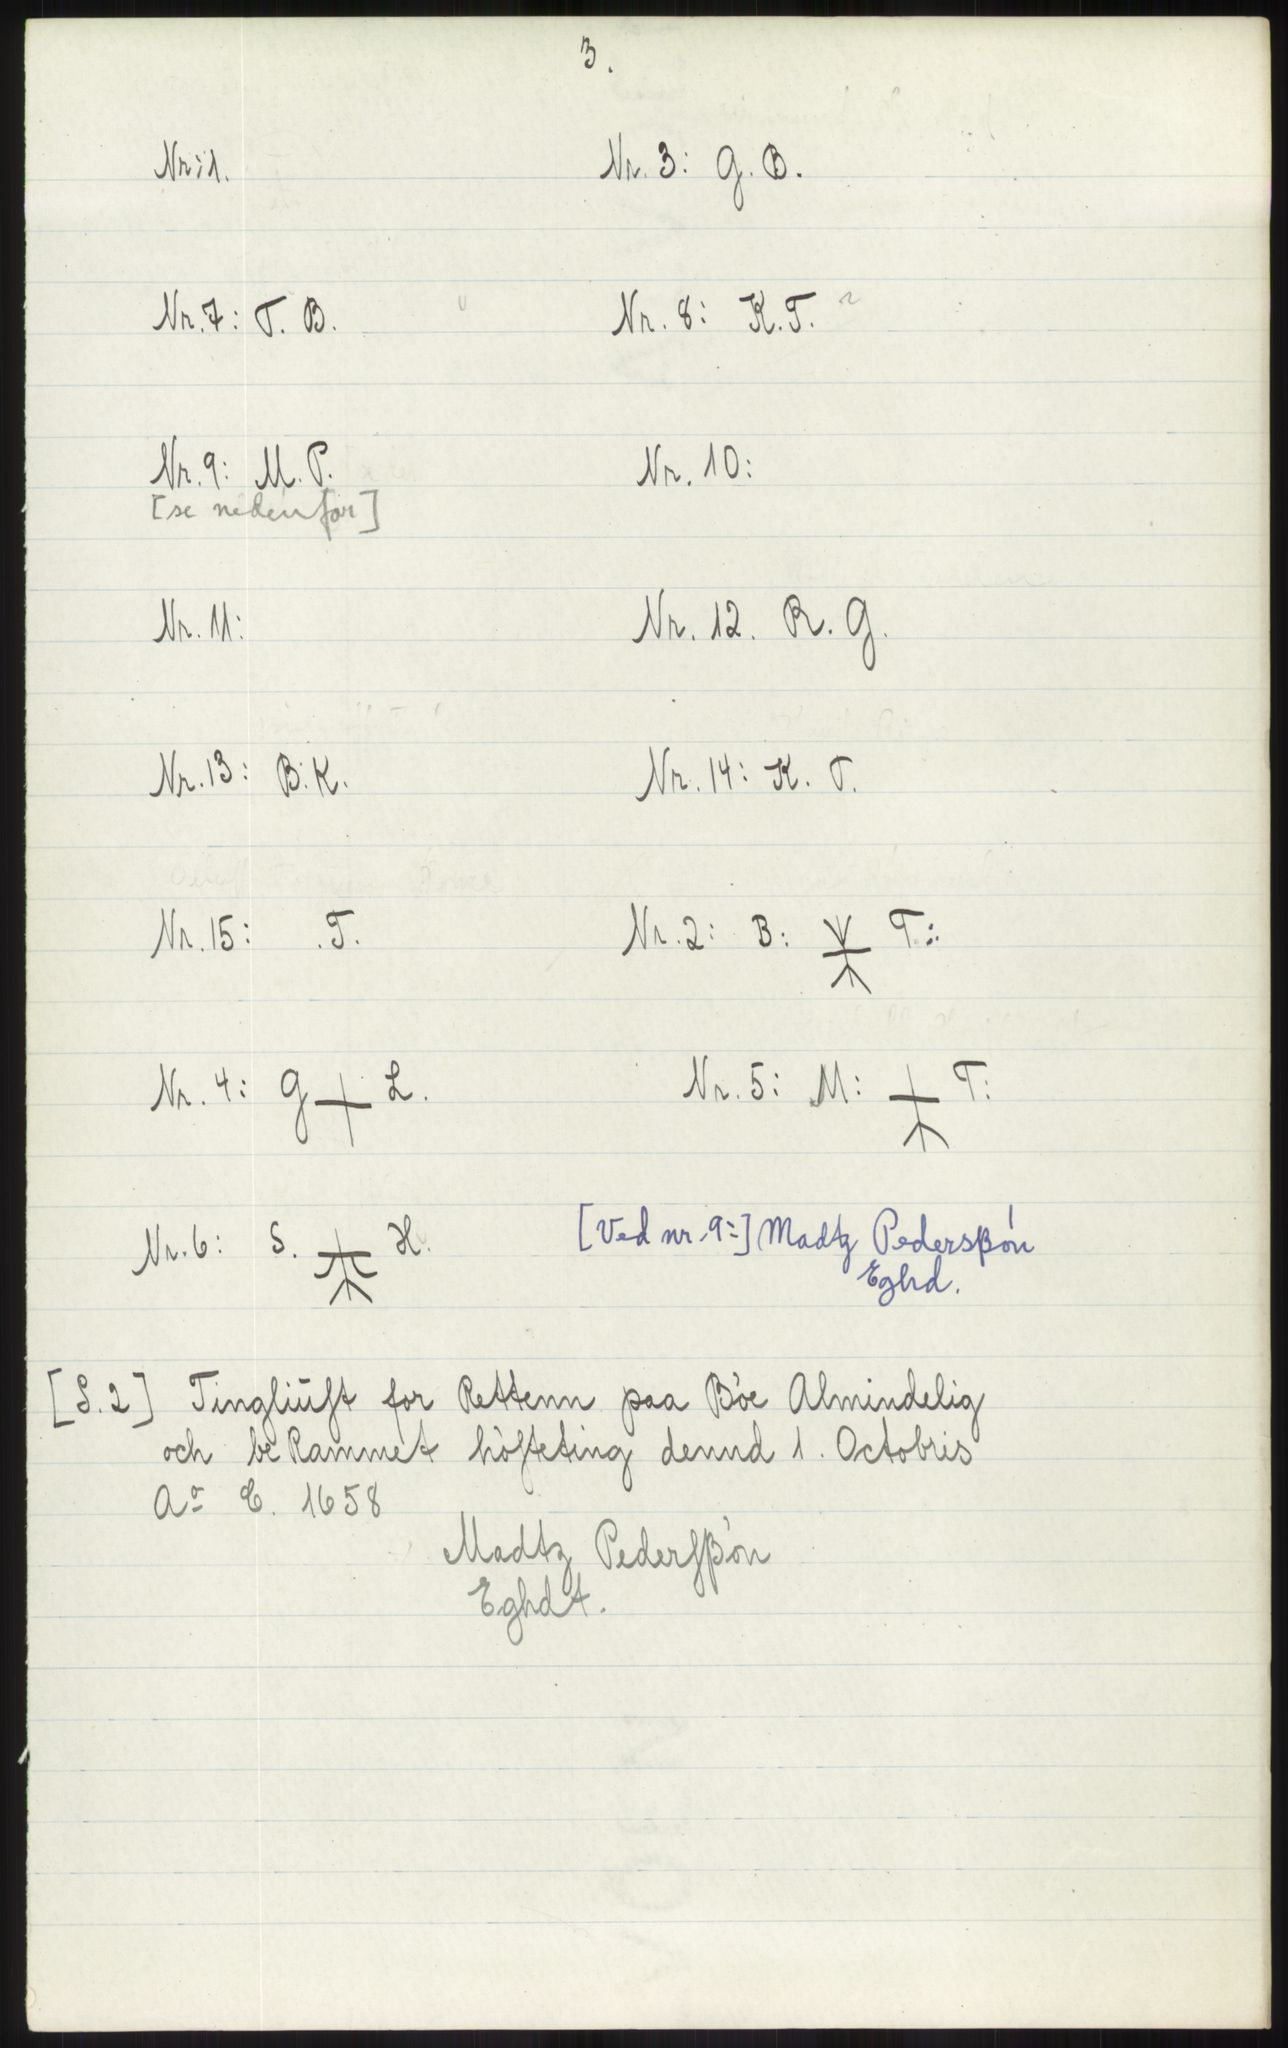 3.
Nr: 1. Nr. 3: G. B.
Nr. 7: T. B. Nr. 8: K. T.
Nr. 9: M. P. Nr. 10:
[se nedenfor]
Nr. 11: Nr. 12. R. G.
Nr. 13: B. K. Nr. 14: K. T.
Nr. 15: . T. Nr. 2: B: T:
Nr. 4: G L. Nr. 5: M: T:
Nr. 6: S. H. [Ved nr. 9:] Madtz Pedersßón
Eghd.
[S. 2] Tingliust for Rettenn paa Böe Almindelig
och beRammet höfteting dennd 1. Octobris
Aº E. 1658
Madtz Pedersßön
Eghdt.